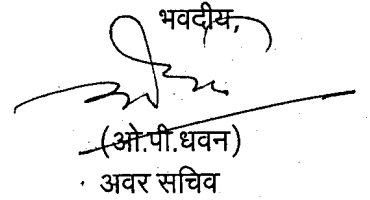 भवदीय,
(ओ.पी.धवन)
अवर सचिव